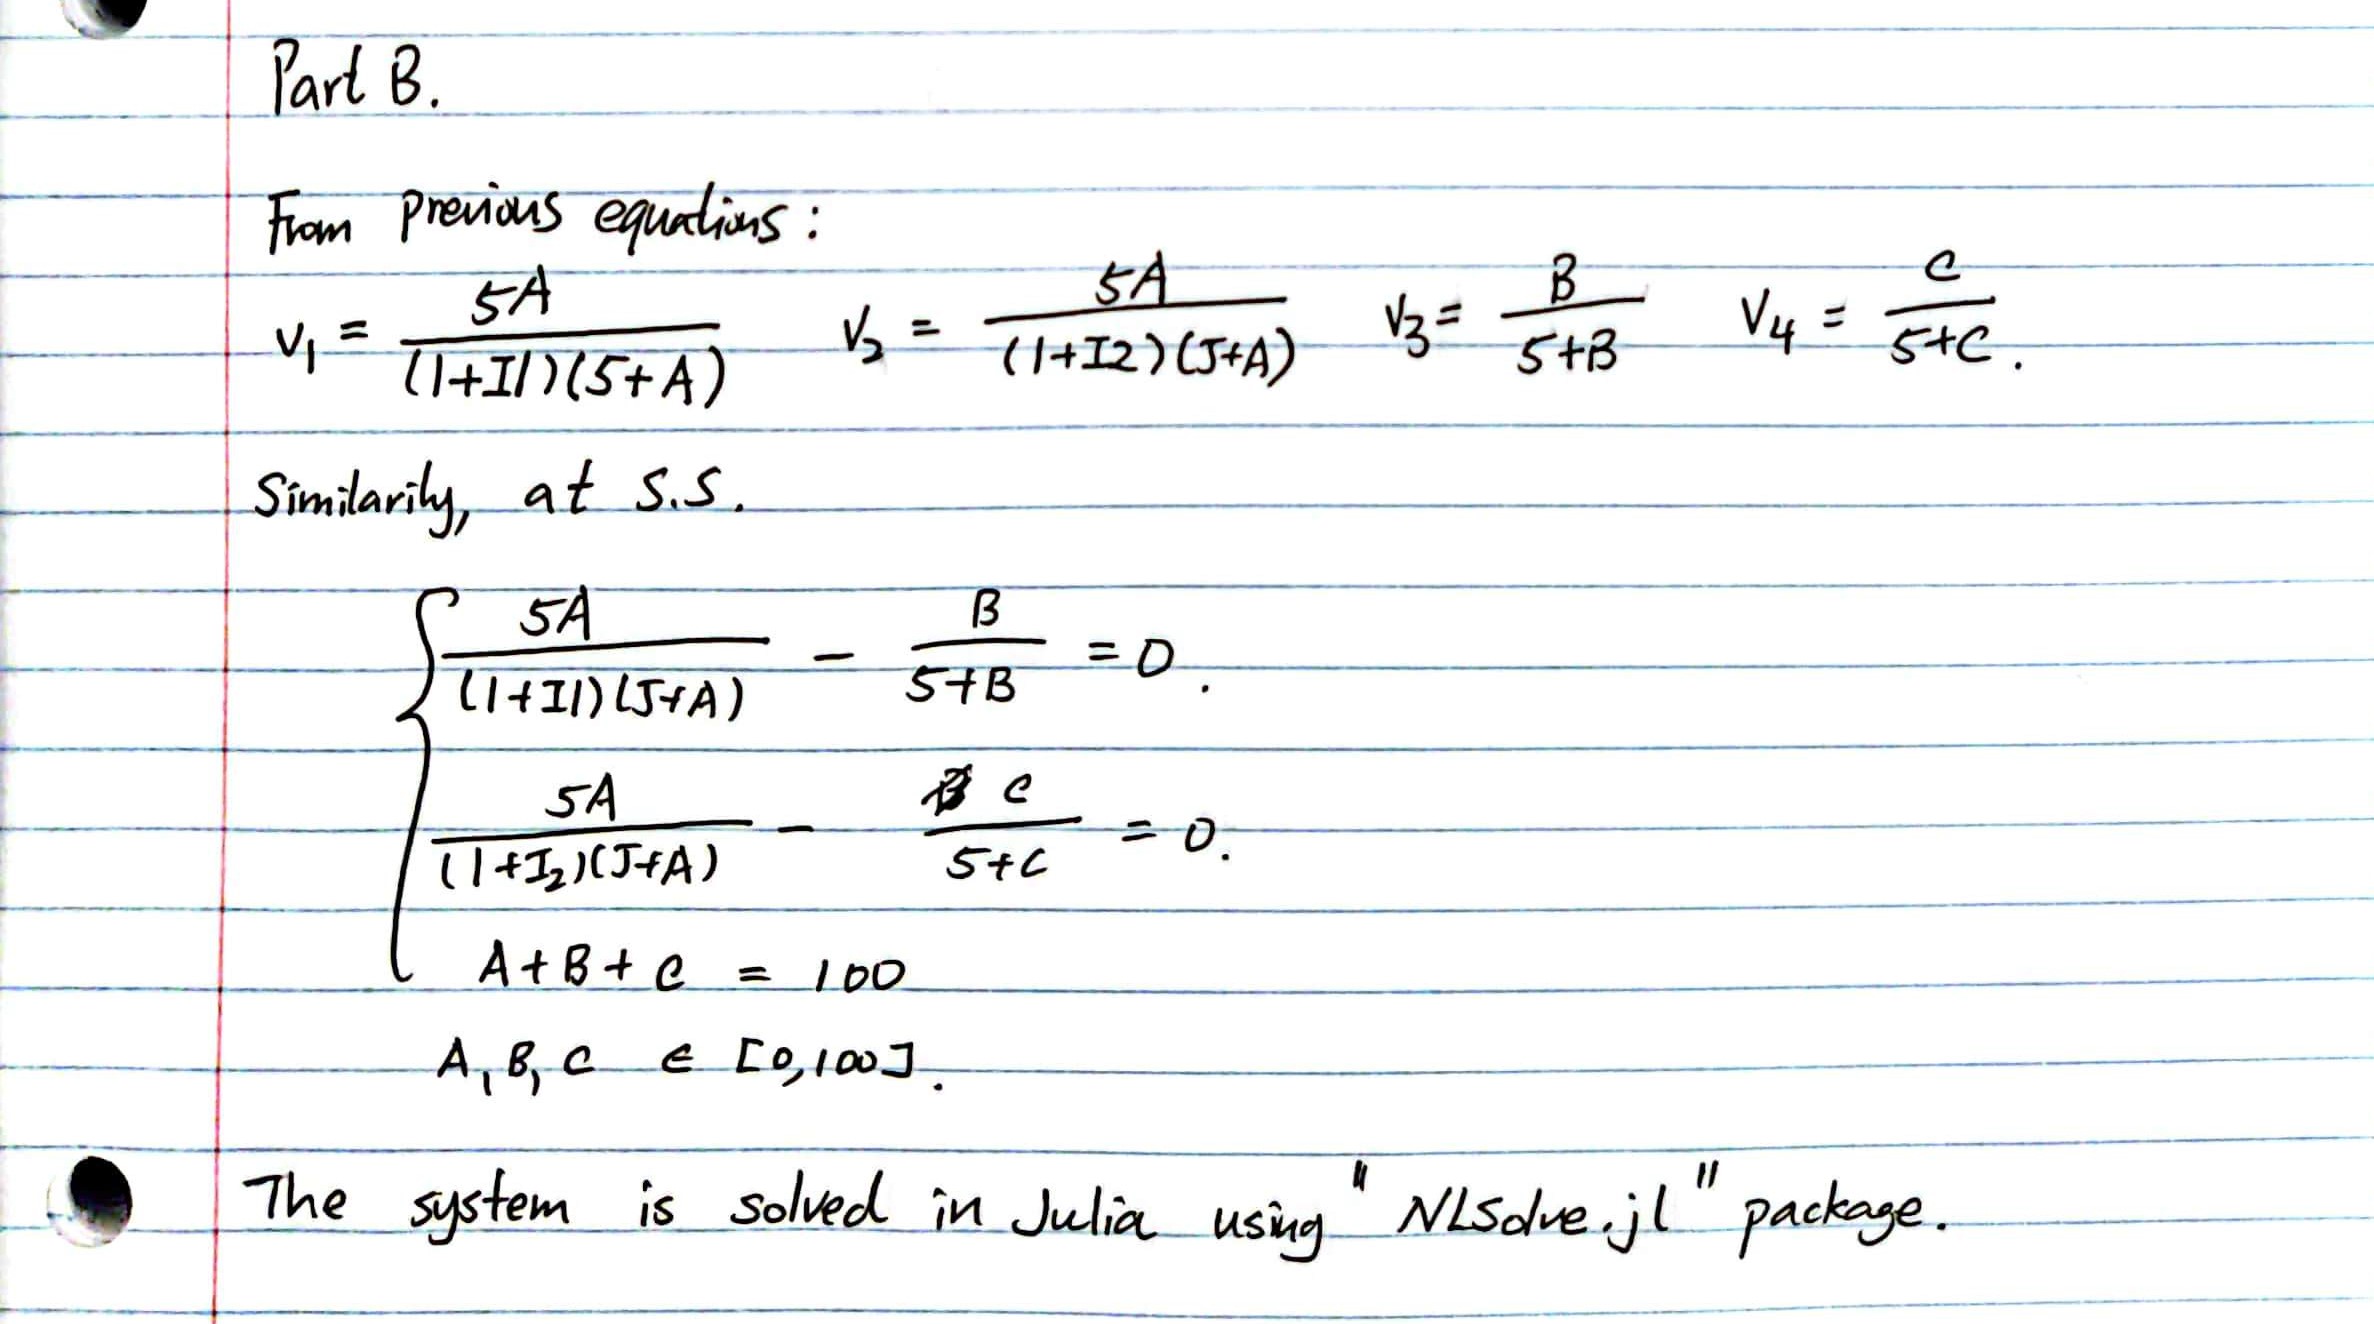 Part B.
From previous equations:
v₁ = 5A / (1+I1)(5+A)   v₂ = 5A / (1+I2)(5+A)   v₃ = B / 5+B   v₄ = C / 5+C .
Similarily, at s.s.
5A / (1+I1)(5+A) − B / 5+B = 0.
5A / (1+I₂)(5+A) − C / 5+C = 0.
A + B + C = 100
A, B, C ∈ [0,100].
The system is solved in Julia using "NLSolve.jl" package.